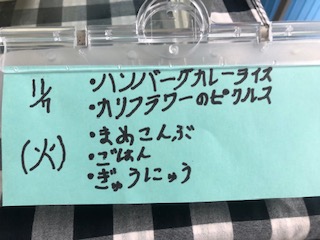 11/7
(火)
・ハンバーグカレーライス
・カリフラワーのピクルス
・まめこんぶ
・ごはん
・ぎゅうにゅう